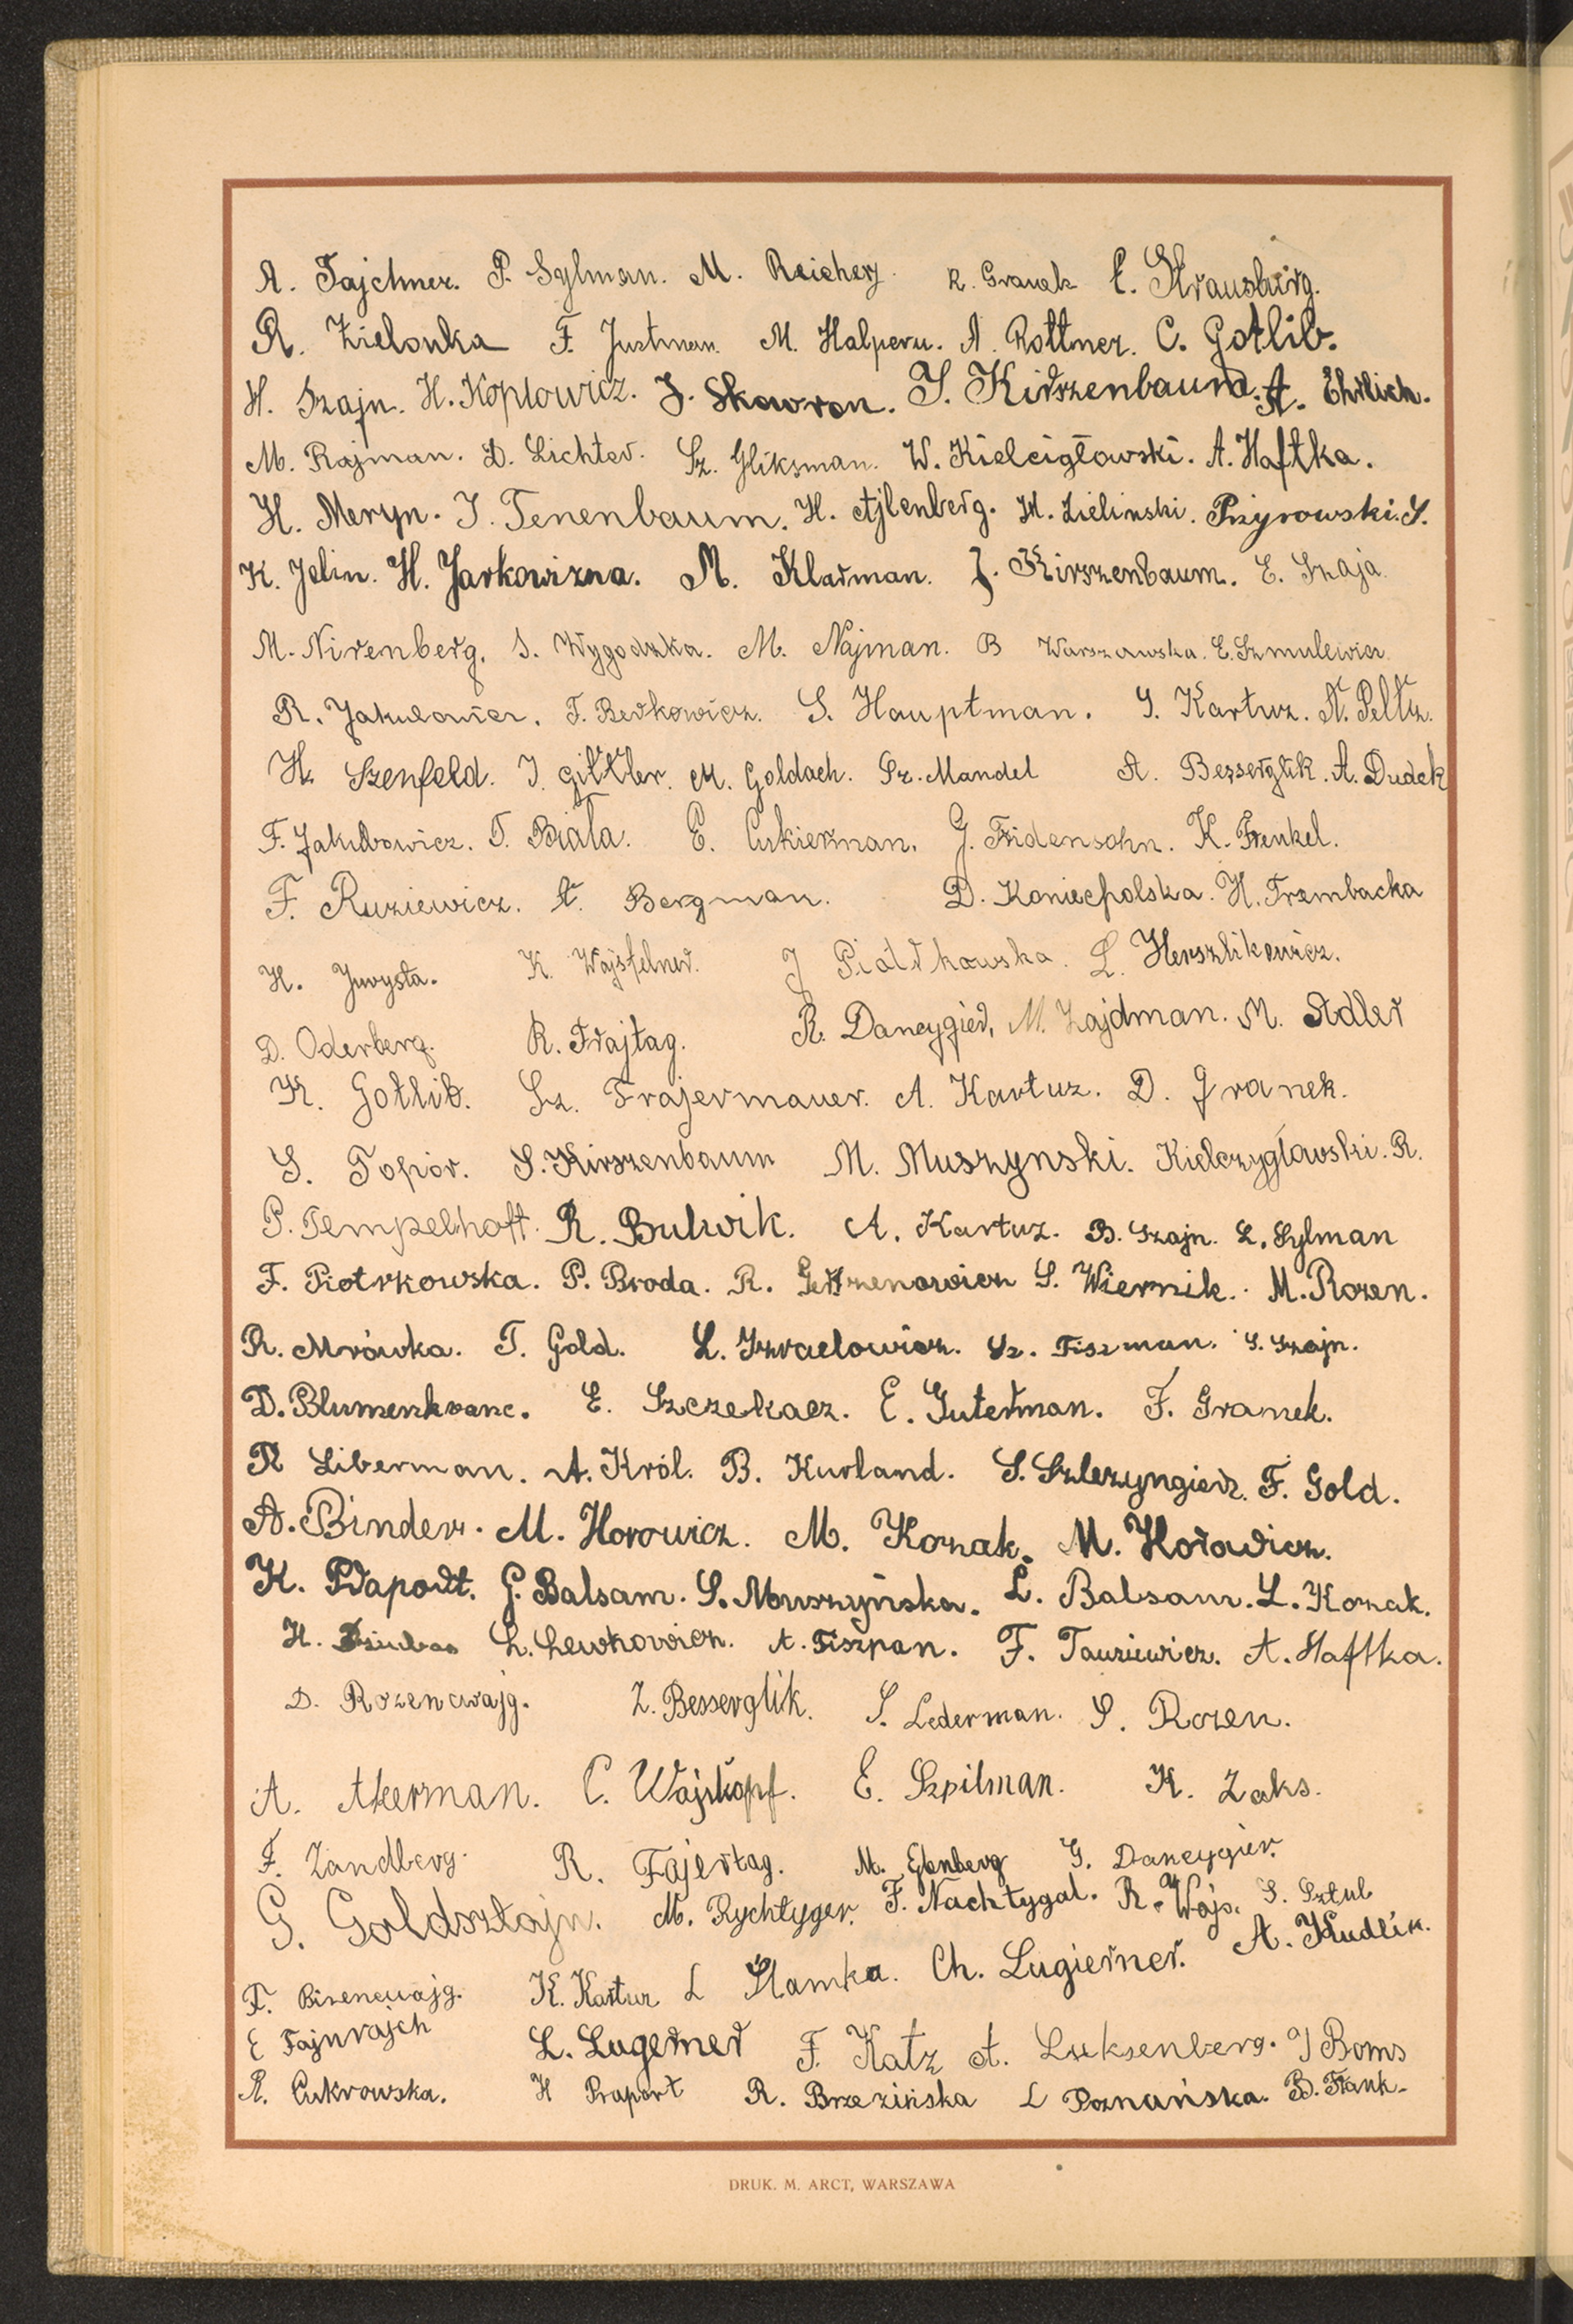 A. Tajchner. P. Sylman. M. Reicher R. Granek E. Strausberg.
R. Zielonka F. Justman. M. Halpern. A. Rottner. C. Gotlib.
H. Szajn. H. Koplowicz. J. Skowron. S. Kirszenbaum. A. Ehrlich.
M. Rajman. D. Lichter. Sz. Gliksman. W. Kielcigłowski. A. Haftka.
H. Meryn. I. Tenenbaum. H. Ajlenberg. M. Zielinski. Pszyrowski. S.
K. Jelin. H. Jarkowizna. M. Klarman. J. Kirszenbaum. E. Szaja
M. Nirenberg. S. Wygodzka. M. Najman. B Warszawska. E. Szmulewicz
R. Jakubowicz. F. Berkowicz. S. Hauptman. S. Kartuz. A. Peltz.
H. Szenfeld. I. Gittler. M. Goldach. Sz. Mandel A. Besserglik. A. Dudek
F. Jakubowicz. T. Biała. E. Cukierman. G. Fridensohn. K. Frenkel.
F. Ruziewicz. A. Bergman. D. Koniecpolska. H. Trembacka
H. Juvysta. K. Wajsfelner. J Piotrkowska. L. Herszlikowicz.
D. Oderberg. R. Frajtag. R. Dancygier, M. Zajdman. M. Adler
K. Gotlib. Sz. Frajermauer. A. Kartuz. D. Granek.
S. Topór. S. Kirszenbaum M. Muszynski. Kielczygłowski. R.
P. Tempelhoff. R. Bulwik. A. Kartuz. B. Szajn. L. Sylman
F. Piotrkowska. P. Broda. R. Gerszenowicz S. Wiernik. M. Rozen.
R. Mrówka. T. Gold. L. Izraelowicz. Sz. Fiszman. S. Szajn.
D. Blumenkranc. E. Szczekacz. E. Guterman. F. Granek.
R Liberman. A. Król. B. Kurland. S. Szlezyngier. F. Gold.
A. Binder. M. Horowicz. M. Kozak. M. Horowicz.
K. Praport. G. Balsam. S. Muszyńska. L. Balsam. L. Kozak.
H. L. Lewkowicz. A. Fiszpan. F. Tauziewicz. A. Haftka.
D. Rozencwajg. Z. Besserglik. S. Lederman. S. Rozen.
A. Akerman. C. Wajskopf. E. Szpilman. K. Zaks.
F. Zandberg. R. Fajertag. M. Elenberg G. Dancygier.
G. Goldsztajn. M. Rychtyger. F. Nachtygal. R. Wajs. S. Sztul
F. Bizencwajg. K. Kartuz L Słamka. Ch. Lugierner. A. Kudlik.
E Fajnrajch L. Lugerner F. Katz A. Luksenberg. J Boms
R. Cukrowska. H Praport R. Brzezińska L Poznańska. B. Frank.
DRUK. M. ARCT, WARSZAWA